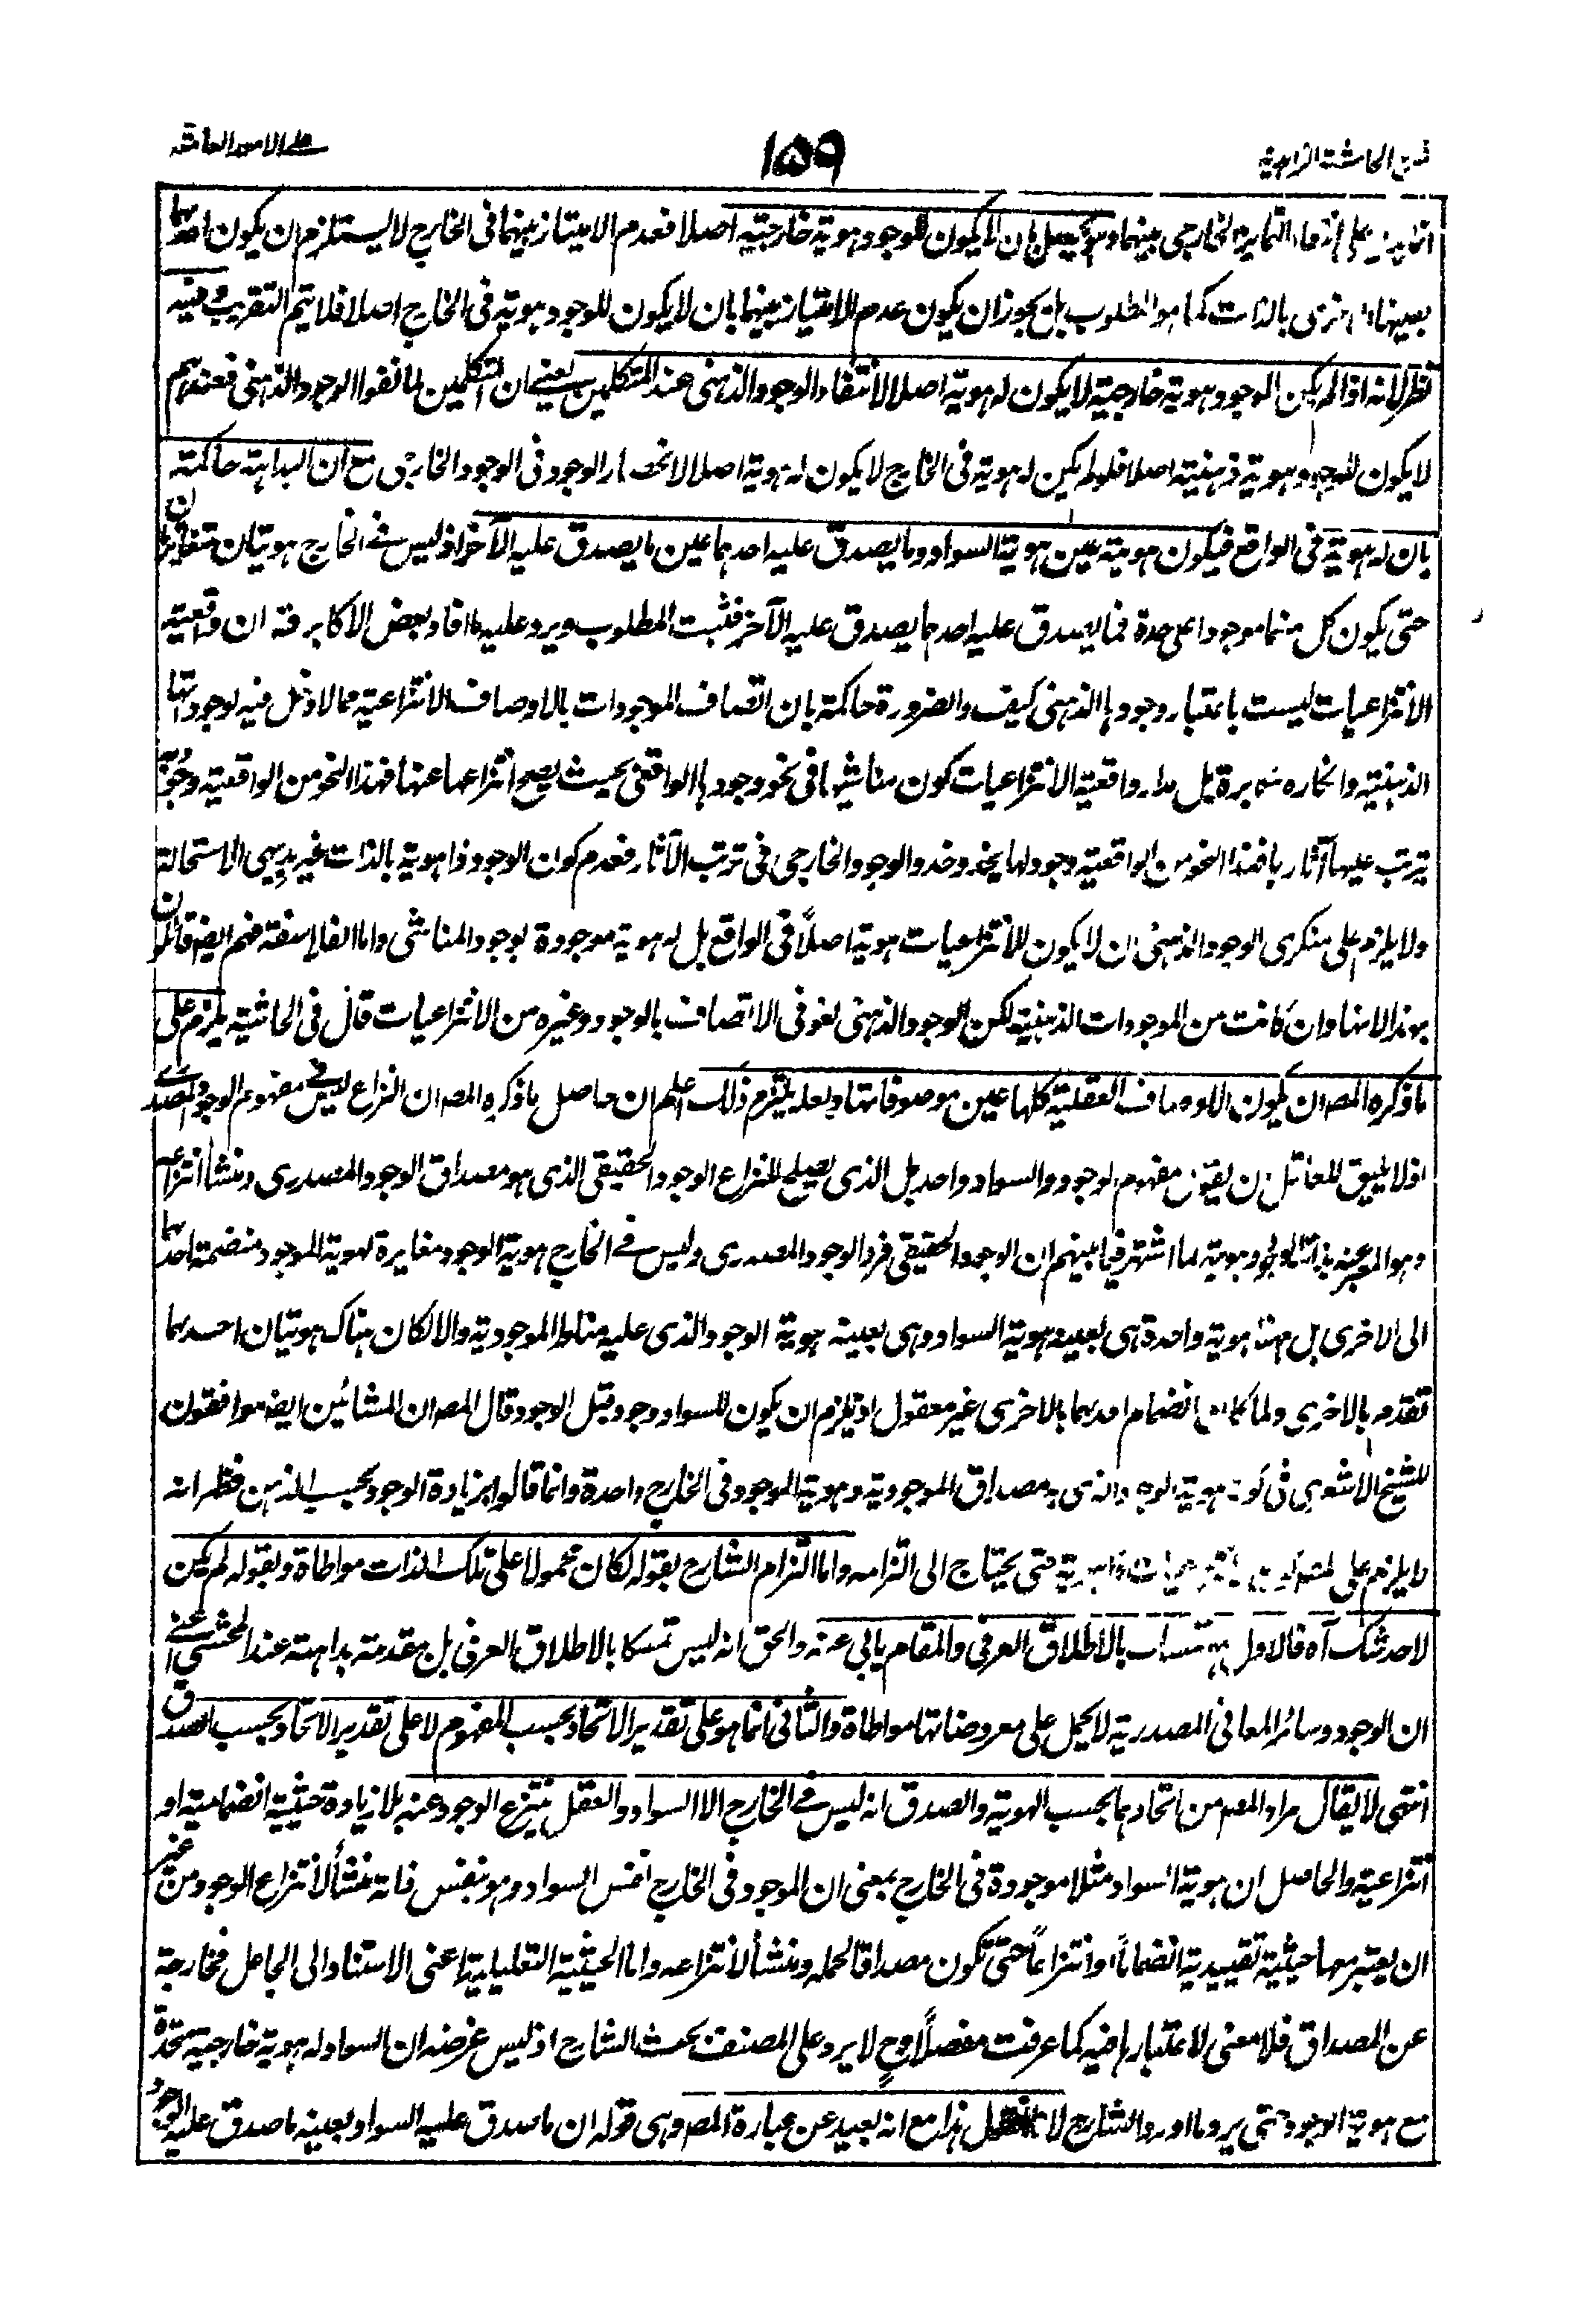 على الامور العامة
۱۵۹
الحاشية الزاهدية
على انتفاء التمايز الخارجي بينهما وهو يحصل بان لا يكون للوجود هوية خارجية اصلا فعدم الامتياز بينهما في الخارج لا يستلزم ان يكون احدهما
بعينها بالذات كما هو المطلوب بل يجوز ان يكون عدم الامتياز بينهما بان لا يكون للوجود هوية في الخارج اصلا فلا يتم التقريب وفيه
نظر لانه اذا لم يكن للوجود هوية خارجية لا يكون له هوية اصلا لانتفاء الوجود الذهني عند المتكلمين يعني ان المتكلمين لما نفوا الوجود الذهني فعندهم
لا يكون للوجود هوية ذهنية اصلا فلو لم يكن له هوية في الخارج لا يكون له هوية اصلا لانحصار الوجود في الوجود الخارجي مع ان البداهة حاكمة
بان له هوية في الواقع فيكون هويته عين هوية السواد وما يصدق عليه احدهما عين ما يصدق عليه الآخر اذ ليس في الخارج هويتان متغايرتان
حتى يكون كل منهما موجودا على حدة فما يصدق عليه احدهما يصدق عليه الآخر فثبت المطلوب ويرد عليه ما افاد بعض الاكابر قه ان واقعية
الانتزاعيات ليست باعتبار وجودها الذهني كيف والضرورة حاكمة بان اتصاف الموجودات بالاوصاف الانتزاعية مما لا دخل فيه لوجوداتها
الذهنية وانكاره مكابرة بل مدار واقعية الانتزاعيات كون مناشيها في نحو وجودها الواقعي بحيث يصح انتزاعها عنها فهذا النحو من الواقعية وجود
يترتب عليها آثارها فهذا النحو من الواقعية وجود لها يحذو حذو الوجود الخارجي في ترتب الآثار فعدم كون الوجود ذا هوية بالذات غير بديهي الاستحالة
ولا يلزم على منكري الوجود الذهني ان لا يكون للانتزاعيات هوية اصلاً في الواقع بل له هوية موجودة بوجود المناشي واما الفلاسفة فهم ايضا قائلون
بهذا لانها وان كانت من الموجودات الذهنية لكن الوجود الذهني لغو في الاتصاف بالوجود وغيره من الانتزاعيات قال في الحاشية يلزم على
ما ذكره المصـ ان يكون الاوصاف العقلية كلها عين موصوفاتها ولعله يلتزم ذلك اعلم ان حاصل ما ذكره المصـ ان النزاع ليس في مفهوم الوجود المصدري
اذ لا يليق للعاقل ان يقول مفهوم الوجود والسواد واحد بل الذي يصلح للنزاع الوجود الحقيقي الذي هو مصداق الوجود المصدري ومنشأ انتزاعه
وهو المعبر عنه بذات الوجود وهويته لما اشتهر فيما بينهم ان الوجود الحقيقي فرد الوجود المصدري وليس في الخارج هوية الوجود مغايرة لهوية الموجود منضمة احدهما
الى الاخرى بل هناك هوية واحدة هي بعينها هوية السواد وهي بعينه هوية الوجود الذي عليه مناط الموجودية والا لكان هناك هويتان احدهما
تقدمه بالاخرى ولما كان انضمام احدهما بالاخرى غير معقول اذ يلزم ان يكون للسواد وجود قبل الوجود قال المصـ ان المشائين ايضا موافقون
للشيخ الاشعري في كون هوية الوجود الذي به مصداق الموجودية وهوية الموجود في الخارج واحدة وانما قالوا بزيادة الوجود بحسب الذهن فظهر انه
لا يلزم على حتى يحتاج الى التزامه واما التزام الشارح بقوله لكان محمولا على تلك الذات مواطاة وبقوله لم يكن
لاحد شك آه فالاول تمسك بالاطلاق العرفي والمقام يابى عنه والحق انه ليس تمسكا بالاطلاق العرفي بل مقدمة بداهة عند المحشي اعني
ان الوجود وسائر المعاني المصدرية لا يحمل على معروضاتها مواطاة والثاني انما هو على تقدير الاتحاد بحسب المفهوم لا على تقدير الاتحاد بحسب الصدق
انتهى لا يقال مراد المصـ من اتحادهما بحسب الهوية والصدق انه ليس في الخارج الا السواد والعقل ينتزع الوجود عنه بلا زيادة حيثية انضمامية او
انتزاعية والحاصل ان هوية السواد مثلا موجودة في الخارج بمعنى ان الموجود في الخارج نفس السواد وهو بنفس ذاته منشأ لانتزاع الوجود من غير
ان يعتبر معها حيثية تقييدية انضماماً او انتزاعاً حتى تكون مصداقا لحمله ومنشأ لانتزاعه واما الحيثية التعليلية اعني الاستناد الى الجاعل فخارجة
عن المصداق فلا معنى لاعتبارها فيه كما عرفت مفصلاً وح لا يرد على المصنف بحث الشارح اذ ليس غرضه ان السواد له هوية خارجية متحدة
مع هوية الوجود حتى يرد ما اورد الشارح لا هذا مع انه بعيد عن عبارة المصـ وهي قوله ان ما صدق عليه السواد بعينه ما صدق عليه الوجود